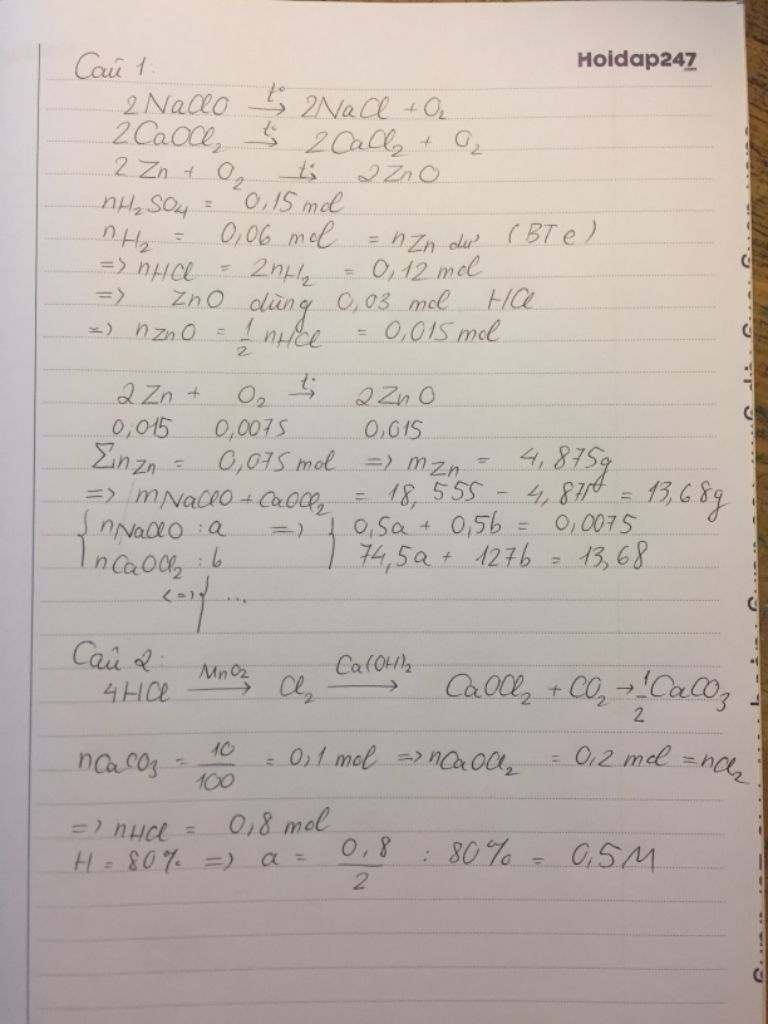 Hoidap247
Câu 1:
2NaClO t°→ 2NaCl + O₂
2CaOCl₂ t°→ 2CaCl₂ + O₂
2Zn + O₂ t°→ 2ZnO
nH₂SO₄ = 0,15 mol
nH₂ = 0,06 mol = nZn dư (BTe)
=> nHCl = 2nH₂ = 0,12 mol
=> ZnO dùng 0,03 mol HCl
=> nZnO = 1/2 nHCl = 0,015 mol
2Zn + O₂ t°→ 2ZnO
0,015 0,0075 0,015
ΣnZn = 0,075 mol => mZn = 4,875g
=> mNaClO + CaOCl₂ = 18,555 - 4,875 = 13,68g
{ nNaClO : a => { 0,5a + 0,5b = 0,0075
nCaOCl₂ : b 74,5a + 127b = 13,68
<=> { ...
Câu 2:
4HCl MnO₂→ Cl₂ Ca(OH)₂→ CaOCl₂ + CO₂ → 1/2 CaCO₃
nCaCO₃ = 10/100 = 0,1 mol => nCaOCl₂ = 0,2 mol = nCl₂
=> nHCl = 0,8 mol
H = 80% => a = 0,8/2 : 80% = 0,5M